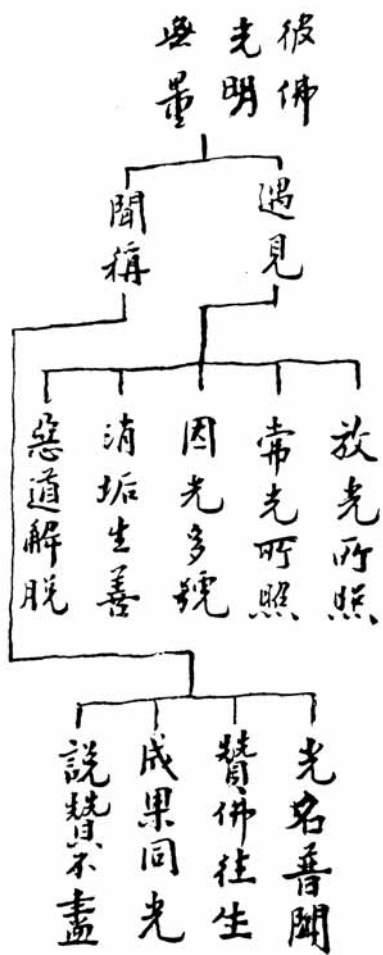 彼佛
光明
無量
遇見
聞稱
放光所照
常光所照
因光多號
消垢生善
惡道解脫
光名普聞
贊佛往生
成果同光
說贊不盡